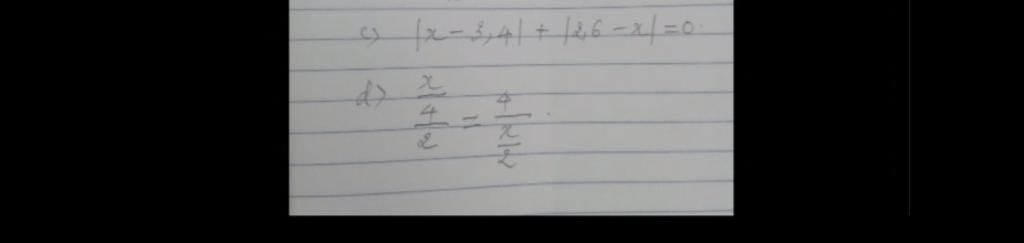 c) |x - 3,4| + |2,6 - x| = 0.
d) x/4/2 = 4/x/2.